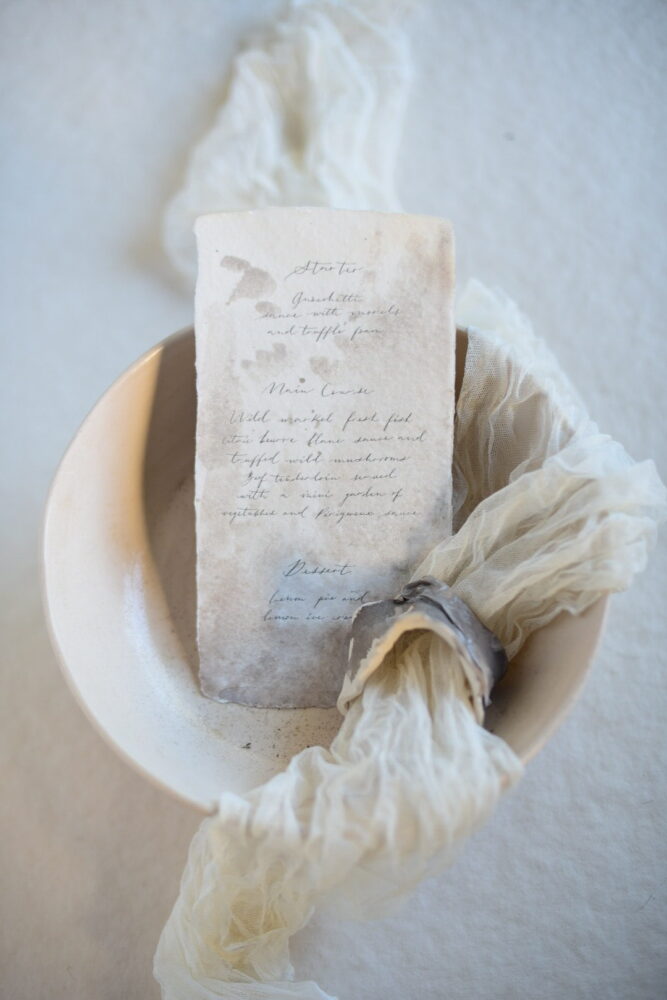 Starter
sauce with morels
and truffle foam
Main Course
Wild market fresh fish
beurre blanc sauce and
truffed wild mushrooms
Bef tenderloin served
with a mini garden of
vegetables and Périgueux sauce
Dessert
Lemon pie and
lemon ice